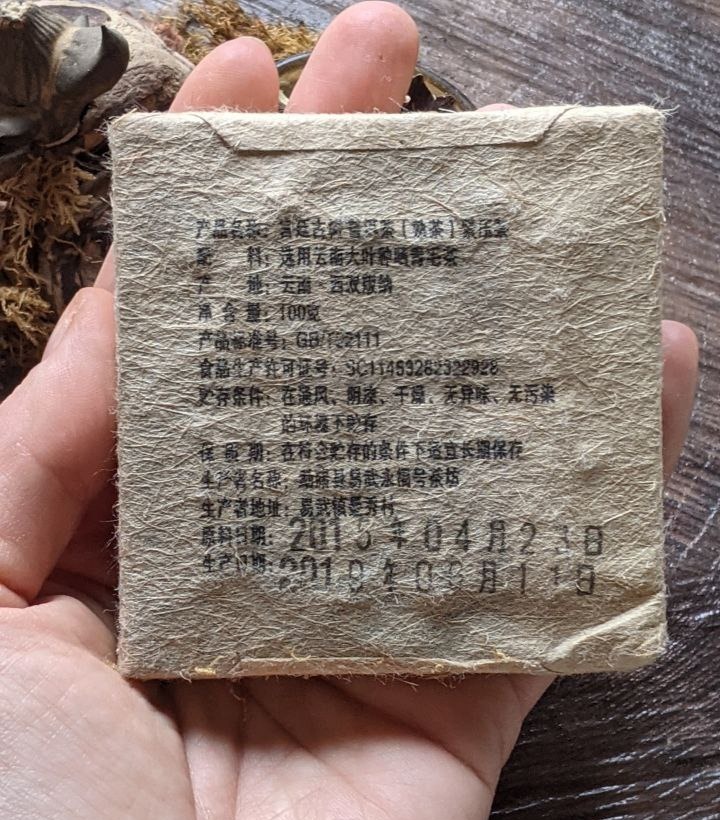 产品名称：宫廷古树普洱茶（熟茶）紧压茶
配　　料：选用云南大叶种晒青毛茶
产　　地：云南　西双版纳
净 含 量：100克
产品标准号：GB/T22111
食品生产许可证号：SC11453282322928
贮存条件：在通风、阴凉、干燥、无异味、无污染
的环境下贮存
保 质 期：在符合贮存的条件下适宜长期保存
生产者名称：勐腊县易武永福号茶坊
生产者地址：易武镇曼秀村
原料日期：2015年04月23日
生产日期：2019年09月11日